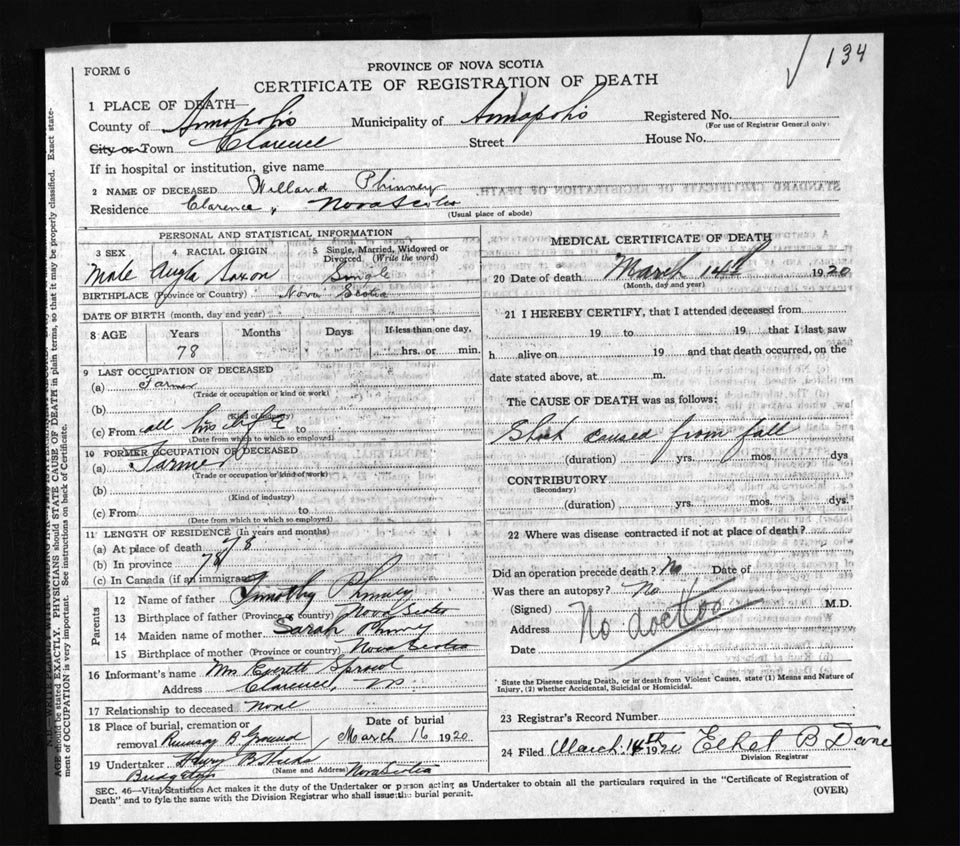 134
FORM 6
PROVINCE OF NOVA SCOTIA
CERTIFICATE OF REGISTRATION OF DEATH
1 PLACE OF DEATH—
County of Annapolis Municipality of Annapolis Registered No.
(For use of Registrar General only.
City or Town Clarence Street House No.
If in hospital or institution, give name
2 NAME OF DECEASED Willard Phinney
Residence Clarence, Nova Scotia
(Usual place of abode)
PERSONAL AND STATISTICAL INFORMATION
3 SEX 4 RACIAL ORIGIN 5 Single, Married, Widowed or Divorced (Write the word)
Male Anglo Saxon Single
BIRTHPLACE (Province or Country) Nova Scotia
DATE OF BIRTH (month, day and year)
8 AGE Years Months Days If less than one day,
78 hrs. or min.
9 LAST OCCUPATION OF DECEASED
(a) Farmer
(Trade or occupation or kind or work)
(b)
(Kind of industry)
(c) From all his life to
(Date from which to which so employed)
10 FORMER OCCUPATION OF DECEASED
(a) Farmer
(Trade or occupation or kind of work)
(b)
(Kind of industry)
(c) From to
(Date from which to which so employed)
11 LENGTH OF RESIDENCE (In years and months)
(a) At place of death 78
(b) In province 78
(c) In Canada (if an immigrant
Parents
12 Name of father Timothy Phinney
13 Birthplace of father (Province or country) Nova Scotia
14 Maiden name of mother Sarah Phinney
15 Birthplace of mother (Province or country) Nova Scotia
16 Informant's name Everett Sproul
Address Clarence, NS
17 Relationship to deceased none
18 Place of burial, cremation or Date of burial
removal B Ground March 16 1920
19 Undertaker B. Hicks
(Name and Address) Nova Scotia
Bridgetown
MEDICAL CERTIFICATE OF DEATH
20 Date of death March 14th 1920
(Month, day and year)
21 I HEREBY CERTIFY, that I attended deceased from
19 to 19 that I last saw
h alive on 19 and that death occurred, on the
date stated above, at m.
The CAUSE OF DEATH was as follows:
Shock caused from fall
(duration) yrs. mos. dys
CONTRIBUTORY
(Secondary)
(duration) yrs. mos. dys.
22 Where was disease contracted if not at place of death?
Did an operation precede death? No Date of
Was there an autopsy? No
(Signed) M.D.
No doctor
Address
Date
* State the Disease causing Death, or in death from Violent Causes, state (1) Means and Nature of
Injury, (2) whether Accidental, Suicidal or Homicidal.
23 Registrar's Record Number
24 Filed March 14th 1920 Ethel B
Division Registrar
SEC. 46—Vital Statistics Act makes it the duty of the Undertaker or person acting as Undertaker to obtain all the particulars required in the "Certificate of Registration of
Death" and to fyle the same with the Division Registrar who shall issue the burial permit.
(OVER)
AGE should be stated EXACTLY. PHYSICIANS should STATE CAUSE OF DEATH in plain terms, so that it may be properly classified. Exact state-
ment of OCCUPATION is very important. See instructions on back of Certificate.